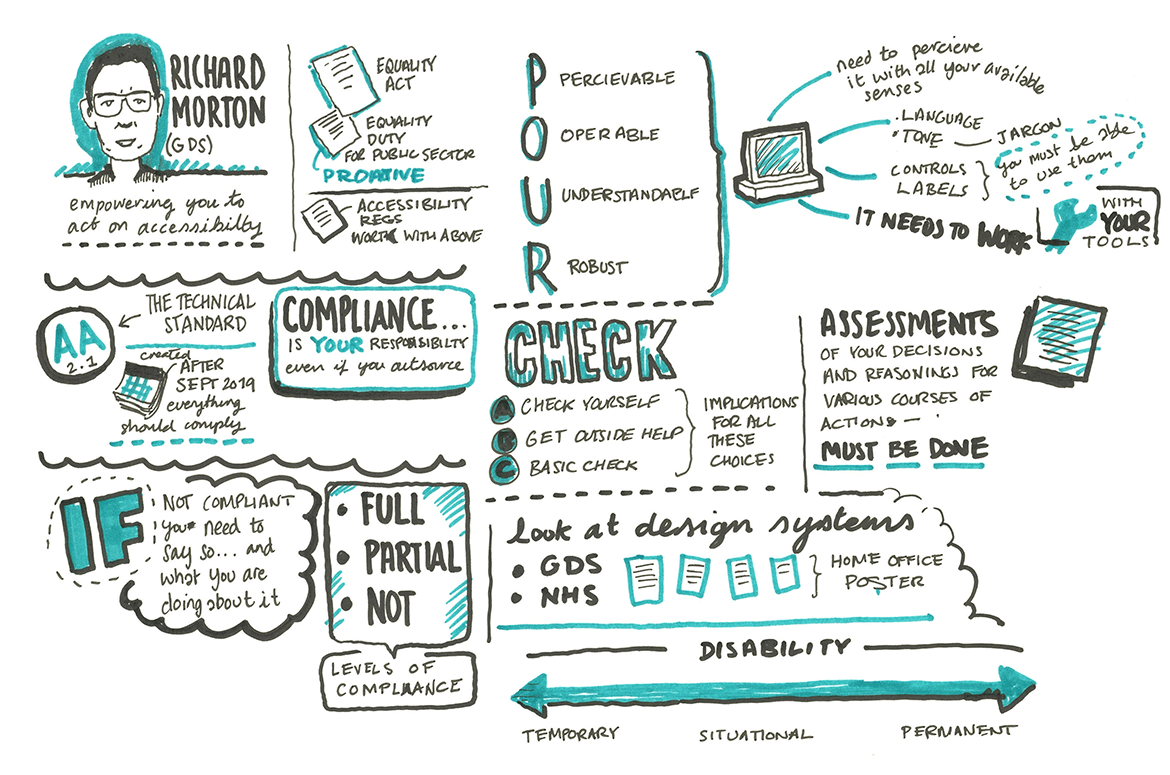 RICHARD
MORTON
(GDS)
empowering you to
act on accessibilty
EQUALITY
ACT
EQUALITY
DUTY
FOR PUBLIC SECTOR
PROATIVE
ACCESSIBILITY
REGS
WORK WITH ABOVE
P PERCIEVABLE
O OPERABLE
U UNDERSTANDABLE
R ROBUST
need to percieve
it with all your available
senses
• LANGUAGE
• TONE
JARGON
CONTROLS
LABELS
you must be able
to use them
IT NEEDS TO WORK
WITH
YOUR
TOOLS
AA
2.1
THE TECHNICAL
STANDARD
created
AFTER
SEPT 2019
everything
should comply
COMPLIANCE...
IS YOUR RESPONSIBILTY
even if you outsource
CHECK
A CHECK YOURSELF
B GET OUTSIDE HELP
C BASIC CHECK
IMPLICATIONS
FOR ALL
THESE
CHOICES
ASSESSMENTS
OF YOUR DECISIONS
AND REASONINGS FOR
VARIOUS COURSES OF
ACTIONS —
MUST BE DONE
IF
NOT COMPLIANT
you need to
say so... and
what you are
doing about it
• FULL
• PARTIAL
• NOT
LEVELS OF
COMPLIANCE
look at design systems
• GDS
• NHS
HOME OFFICE
POSTER
DISABILITY
TEMPORARY
SITUATIONAL
PERMANENT